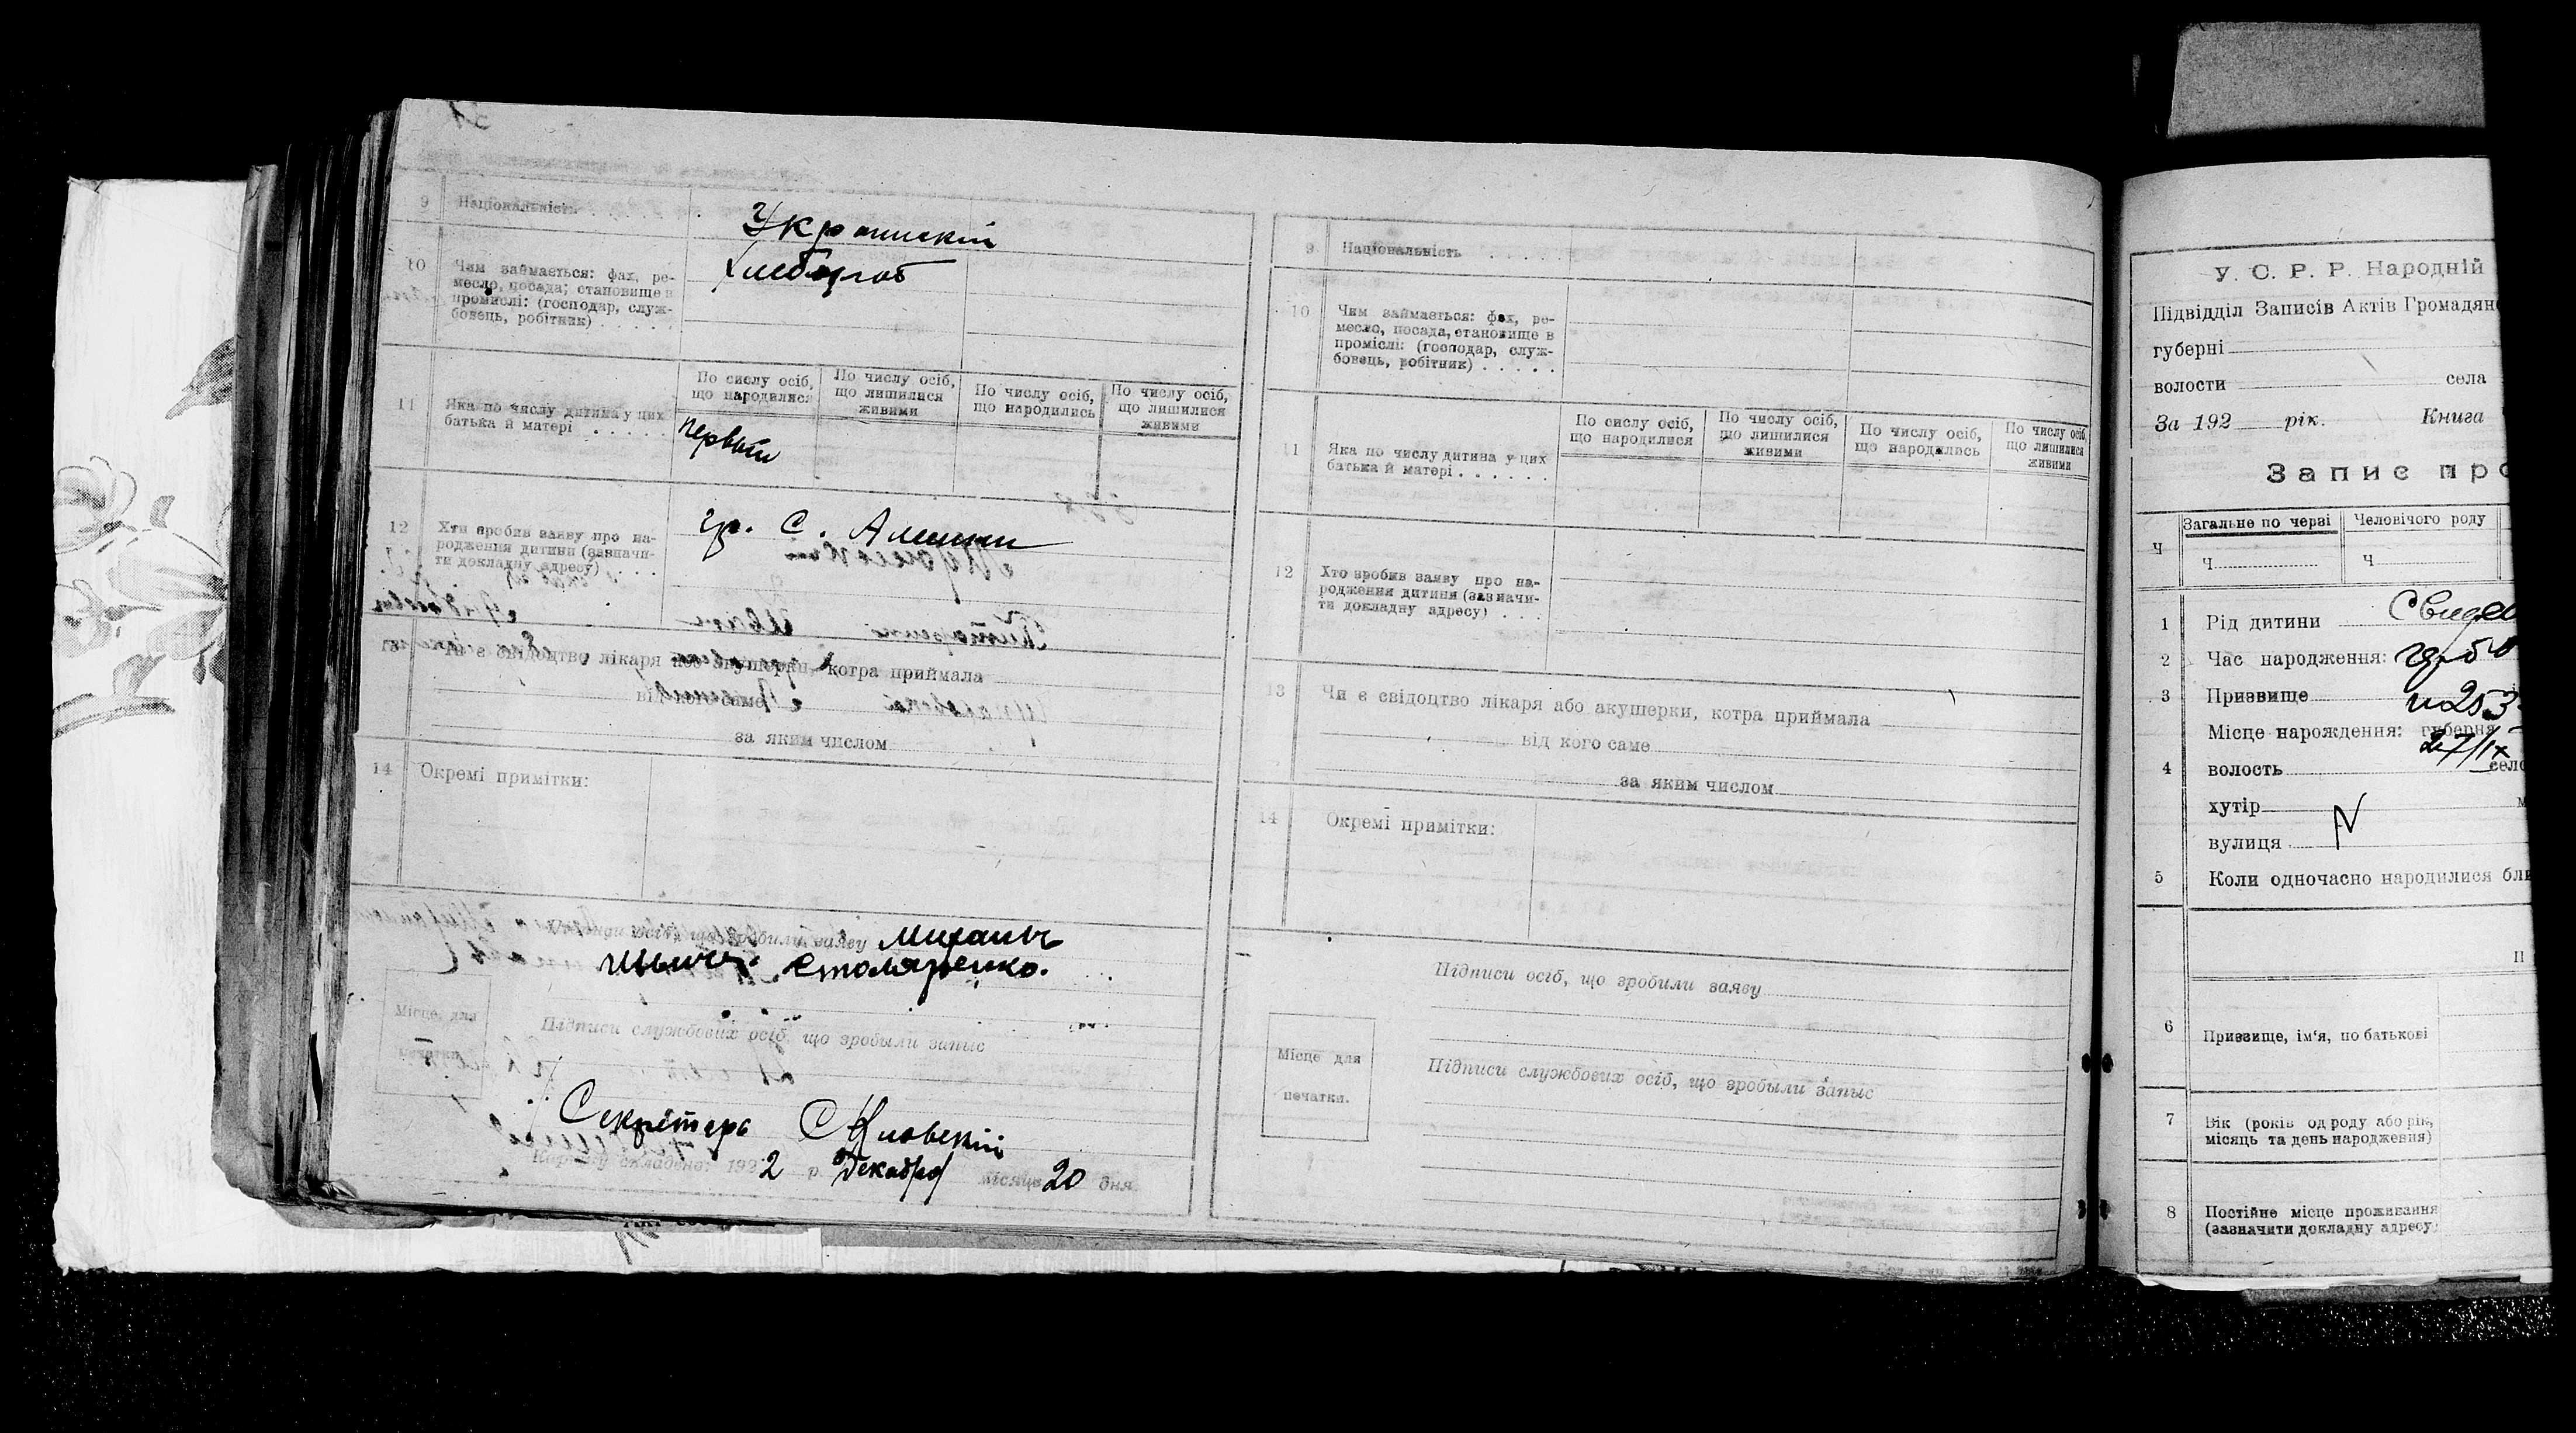 9 Національність
Украинскій
10 Чим займається: фах, ре-
месло, посада; становище в
промислі: (господар, служ-
бовець, робітник)
Хлебороб
11 Яка по числу дитина у цих
батька й матері
По сислу осіб,
що народилися
По числу осіб,
що лишилися
живими
По числу осіб,
що народились
По числу осіб,
що лишилися
живими
первый
12 Хто зробив заяву про на-
родження дитини (зазначи-
ти докладну адресу)
гр. С.
13 Чи є свідоцтво лікаря або акушерки, котра приймала
від кого саме
за яким числом
14 Окремі примітки:
Підписи осіб, що зробили заяву Михаилъ
Столяренко.
Місце для
печатки
Підписи службових осіб, що зробыли запыс
Секретарь
Картку складено: 1922 р. Декабря місяця 20 дня
9 Національність
10 Чим займається: фах, ре-
месло, посада, становище в
промислі: (господар, служ-
бовець, робітник)
11 Яка по числу дитина у цих
батька й матері
По сислу осіб,
що народилися
По числу осіб,
що лишилися
живими
По числу осіб,
що народились
По числу осіб,
що лишилися
живими
12 Хто зробив заяву про на-
родження дитини (зазначи-
ти докладну адресу)
13 Чи є свідоцтво лікаря або акушерки, котра приймала
від кого саме
за яким числом
14 Окремі примітки:
Підписи осіб, що зробили заяву
Місце для
печатки.
Підписи службових осіб, що зробыли запыс
У. С. Р. Р. Народній
Підвідділ Записів Актів Громадян
губерні
волости села
За 192 рік. Книга
Запис про
Ч
Загальне по черзі
Человічого роду
Ч
Ч
1 Рід дитини
2 Час народження:
3 Призвище
№ 253
Місце нарождення: губерня
27/IX
4 волость село
хутір
вулиця
5 Коли одночасно народилися бли
6 Призвище, ім'я, по батькові
7 Вік (років од роду або рік,
місяць та день народження)
8 Постійне місце проживання
(зазначити докладну адресу)